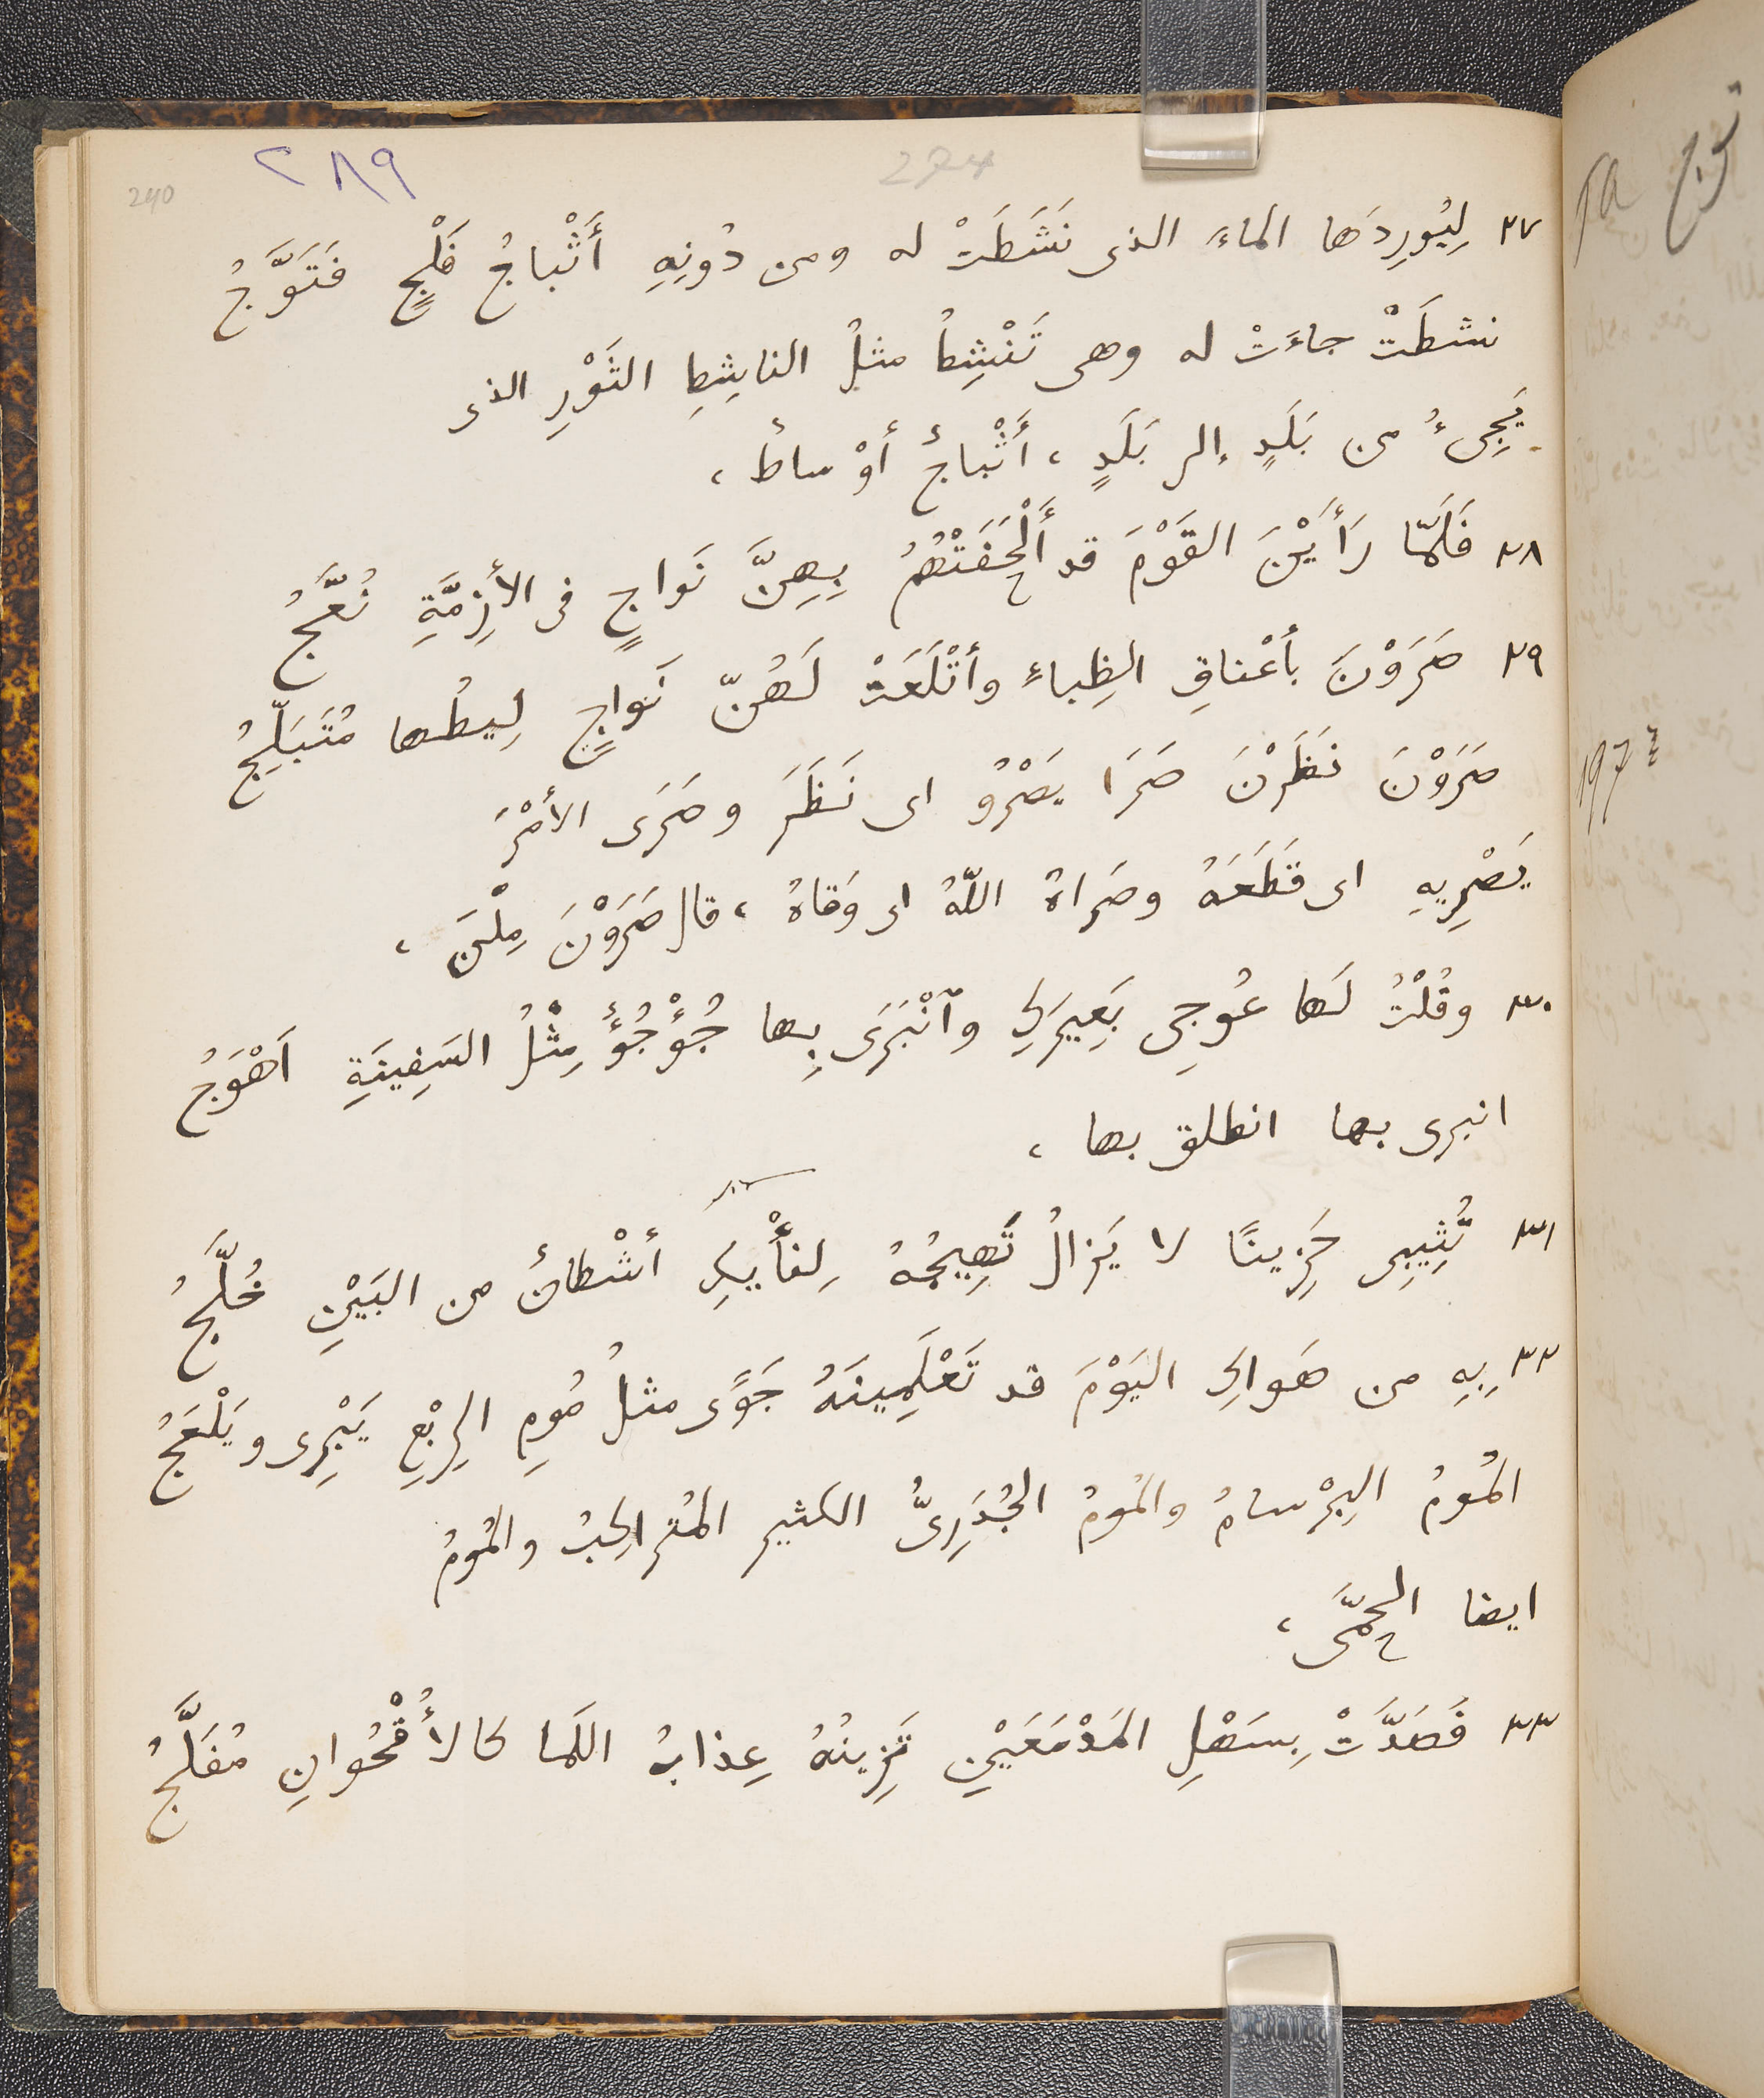 240 ٢٨٩ 274
٢٧ لِيُورِدَها الماءَ الذى نَشَطَتْ له ومن دُونِهِ أَثْباجُ فَلْجٍ فَتَوَّجُ
نشطَتْ جاءَتْ له وهى تَنْشِطُ مثلُ الناشِطِ الثَوْرِ الذى
يَجِىءُ من بَلَدٍ إلى بَلَدٍ ، أَثْباجُ أوْساطُ ،
٢٨ فَلَمّا رَأَيْنَ القَوْمَ قد أَلْحَفَتْهُمُ بِهِنَّ نَواجٍ فى الأَزِمَّةِ نُعَّجُ
٢٩ صَرَوْنَ بأعْناقِ الظِباءِ وأتْلَعَتْ لَهُنّ نَواجٍ لِيطُها مُتَبَلِّجُ
صَرَوْنَ نَظَرْنَ صَرَا يَصْرُو اى نَظَرَ وصَرَى الأمْرَ
يَصْرِيهِ اى قَطَعَهُ وصَراهُ اللّهُ اى وَقاهُ ، قال صَرَوْنَ مِلْنَ ،
٣٠ وقُلْتُ لَها عُوجِى بَعِيرَكِ وٱنْبَرَى بِها جُؤْجُؤٌ مِثْلُ السَفِينَةِ اَهْوَجُ
انبرى بها انطلق بها ،
٣١ تُثِيبِى حَزِينًا لا يَزالُ تَهِيجُهُ لِنَأْيِكِ أشْطانٌ من البَيْنِ خُلَّجُ
٣٢ بِهِ من هَواكِ اليَوْمَ قد تَعْلَمِينَهُ جَوًى مثلُ مُومِ الرِبْعِ يَبْرِى ويَلْعَجُ
المُومُ البِرْسامُ والمُومُ الجُدَرِىُّ الكثير المُتراكِبُ والمُومُ
ايضا الحُمَّى ،
٣٣ فَصَدَّتْ بِسَهْلِ المَدْمَعَيْنِ تَزِينُهُ عِذابُ اللَمَا كالأُقْحُوانِ مُفَلَّجُ